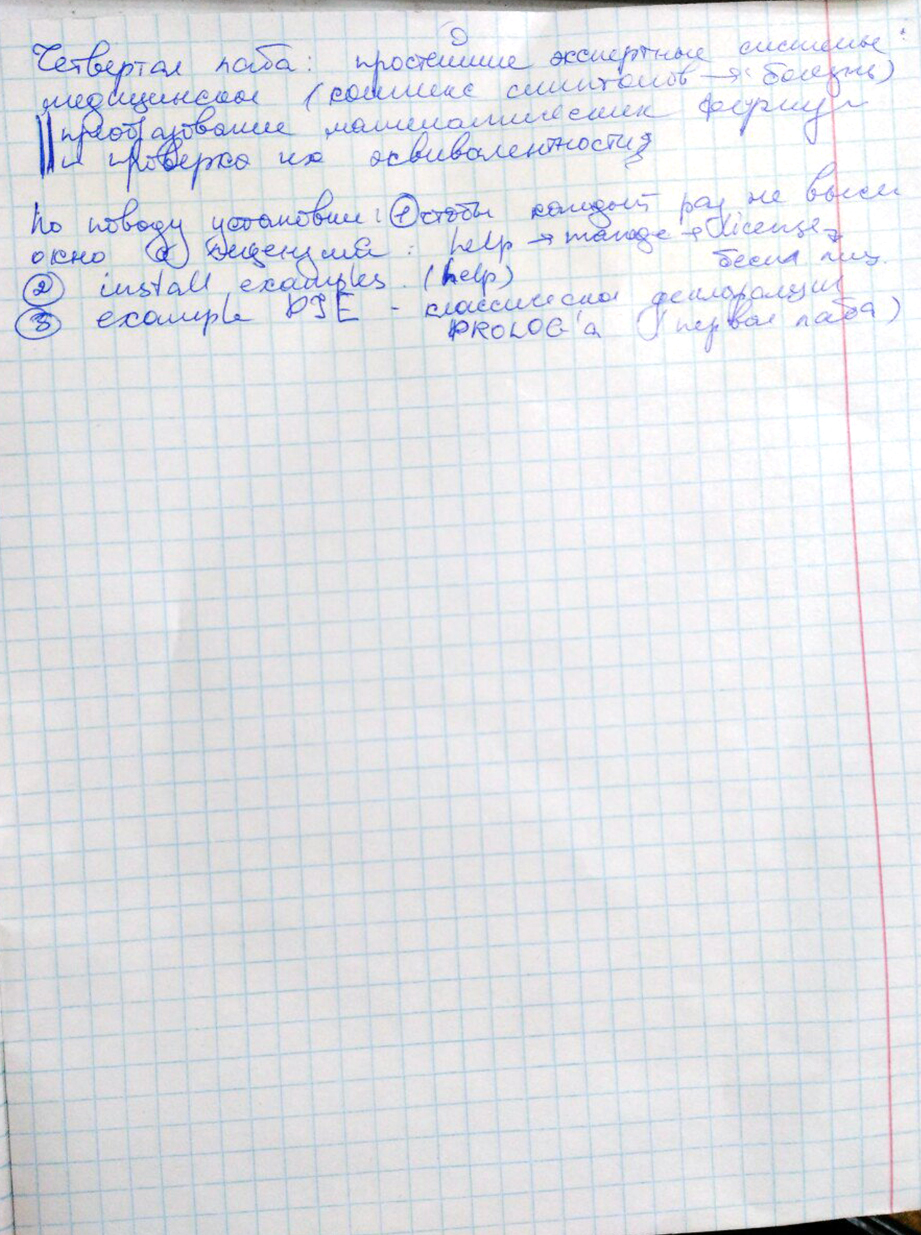 Четвертая лаба: простейшие экспертные системы:
медицинская (комплекс симптомов → болезнь)
преобразование математических формул
и проверка их эквивалентности
По поводу установки: ① чтобы каждый раз не
окно с лицензией: help → manage → license →
беспл лиц.
② install examples (help)
③ example PIE - классическая декларация
PROLOG'а (первая лаба)